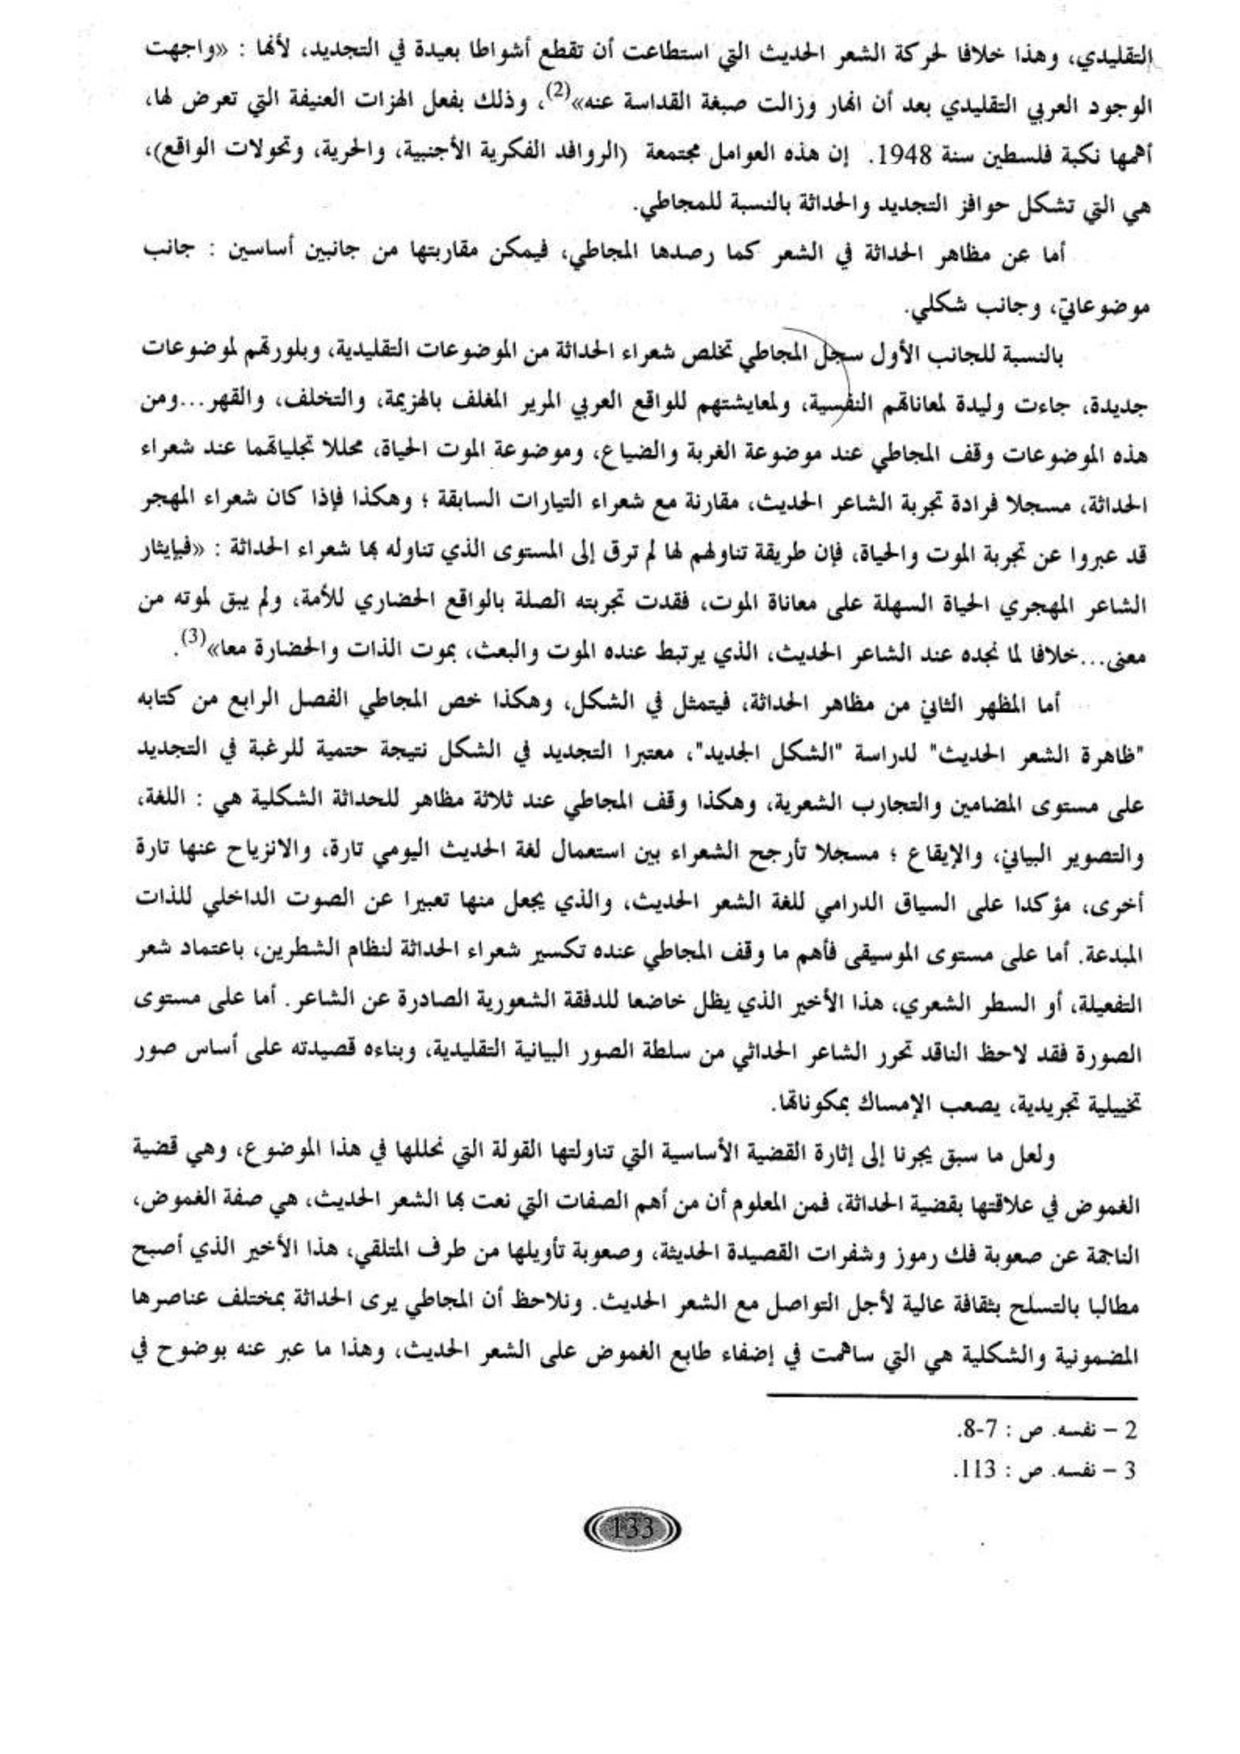 التقليدي، وهذا خلافا لحركة الشعر الحديث التي استطاعت أن تقطع أشواطا بعيدة في التجديد، لأنها : «واجهت
الوجود العربي التقليدي بعد أن انهار وزالت صبغة القداسة عنه»(2)، وذلك بفعل الهزات العنيفة التي تعرض لها،
أهمها نكبة فلسطين سنة 1948. إن هذه العوامل مجتمعة (الروافد الفكرية الأجنبية، والحرية، وتحولات الواقع)،
هي التي تشكل حوافز التجديد والحداثة بالنسبة للمجاطي.
أما عن مظاهر الحداثة في الشعر كما رصدها المجاطي، فيمكن مقاربتها من جانبين أساسين : جانب
موضوعاتي، وجانب شكلي.
بالنسبة للجانب الأول سجل المجاطي تخلص شعراء الحداثة من الموضوعات التقليدية، وبلورتهم لموضوعات
جديدة، جاءت وليدة لمعاناتهم النفسية، ولمعايشتهم للواقع العربي المرير المغلف بالهزيمة، والتخلف، والقهر...ومن
هذه الموضوعات وقف المجاطي عند موضوعة الغربة والضياع، وموضوعة الموت الحياة، محللا تجلياتهما عند شعراء
الحداثة، مسجلا فرادة تجربة الشاعر الحديث، مقارنة مع شعراء التيارات السابقة ؛ وهكذا فإذا كان شعراء المهجر
قد عبروا عن تجربة الموت والحياة، فإن طريقة تناولهم لها لم ترق إلى المستوى الذي تناوله بها شعراء الحداثة : «فبإيثار
الشاعر المهجري الحياة السهلة على معاناة الموت، فقدت تجربته الصلة بالواقع الحضاري للأمة، ولم يبق لموته من
معنى...خلافا لما نجده عند الشاعر الحديث، الذي يرتبط عنده الموت والبعث، بموت الذات والحضارة معا»(3).
أما المظهر الثاني من مظاهر الحداثة، فيتمثل في الشكل، وهكذا خص المجاطي الفصل الرابع من كتابه
"ظاهرة الشعر الحديث" لدراسة "الشكل الجديد"، معتبرا التجديد في الشكل نتيجة حتمية للرغبة في التجديد
على مستوى المضامين والتجارب الشعرية، وهكذا وقف المجاطي عند ثلاثة مظاهر للحداثة الشكلية هي : اللغة،
والتصوير البياني، والإيقاع ؛ مسجلا تأرجح الشعراء بين استعمال لغة الحديث اليومي تارة، والانزياح عنها تارة
أخرى، مؤكدا على السياق الدرامي للغة الشعر الحديث، والذي يجعل منها تعبيرا عن الصوت الداخلي للذات
المبدعة. أما على مستوى الموسيقى فأهم ما وقف المجاطي عنده تكسير شعراء الحداثة لنظام الشطرين، باعتماد شعر
التفعيلة، أو السطر الشعري، هذا الأخير الذي يظل خاضعا للدفقة الشعورية الصادرة عن الشاعر. أما على مستوى
الصورة فقد لاحظ الناقد تحرر الشاعر الحداثي من سلطة الصور البيانية التقليدية، وبناءه قصيدته على أساس صور
تخييلية تجريدية، يصعب الإمساك بمكوناتها.
ولعل ما سبق يجرنا إلى إثارة القضية الأساسية التي تناولتها القولة التي نحللها في هذا الموضوع، وهي قضية
الغموض في علاقتها بقضية الحداثة، فمن المعلوم أن من أهم الصفات التي نعت بها الشعر الحديث، هي صفة الغموض،
الناجمة عن صعوبة فك رموز وشفرات القصيدة الحديثة، وصعوبة تأويلها من طرف المتلقي، هذا الأخير الذي أصبح
مطالبا بالتسلح بثقافة عالية لأجل التواصل مع الشعر الحديث. ونلاحظ أن المجاطي يرى الحداثة بمختلف عناصرها
المضمونية والشكلية هي التي ساهمت في إضفاء طابع الغموض على الشعر الحديث، وهذا ما عبر عنه بوضوح في
2 – نفسه. ص : 7-8.
3 – نفسه. ص : 113.
133